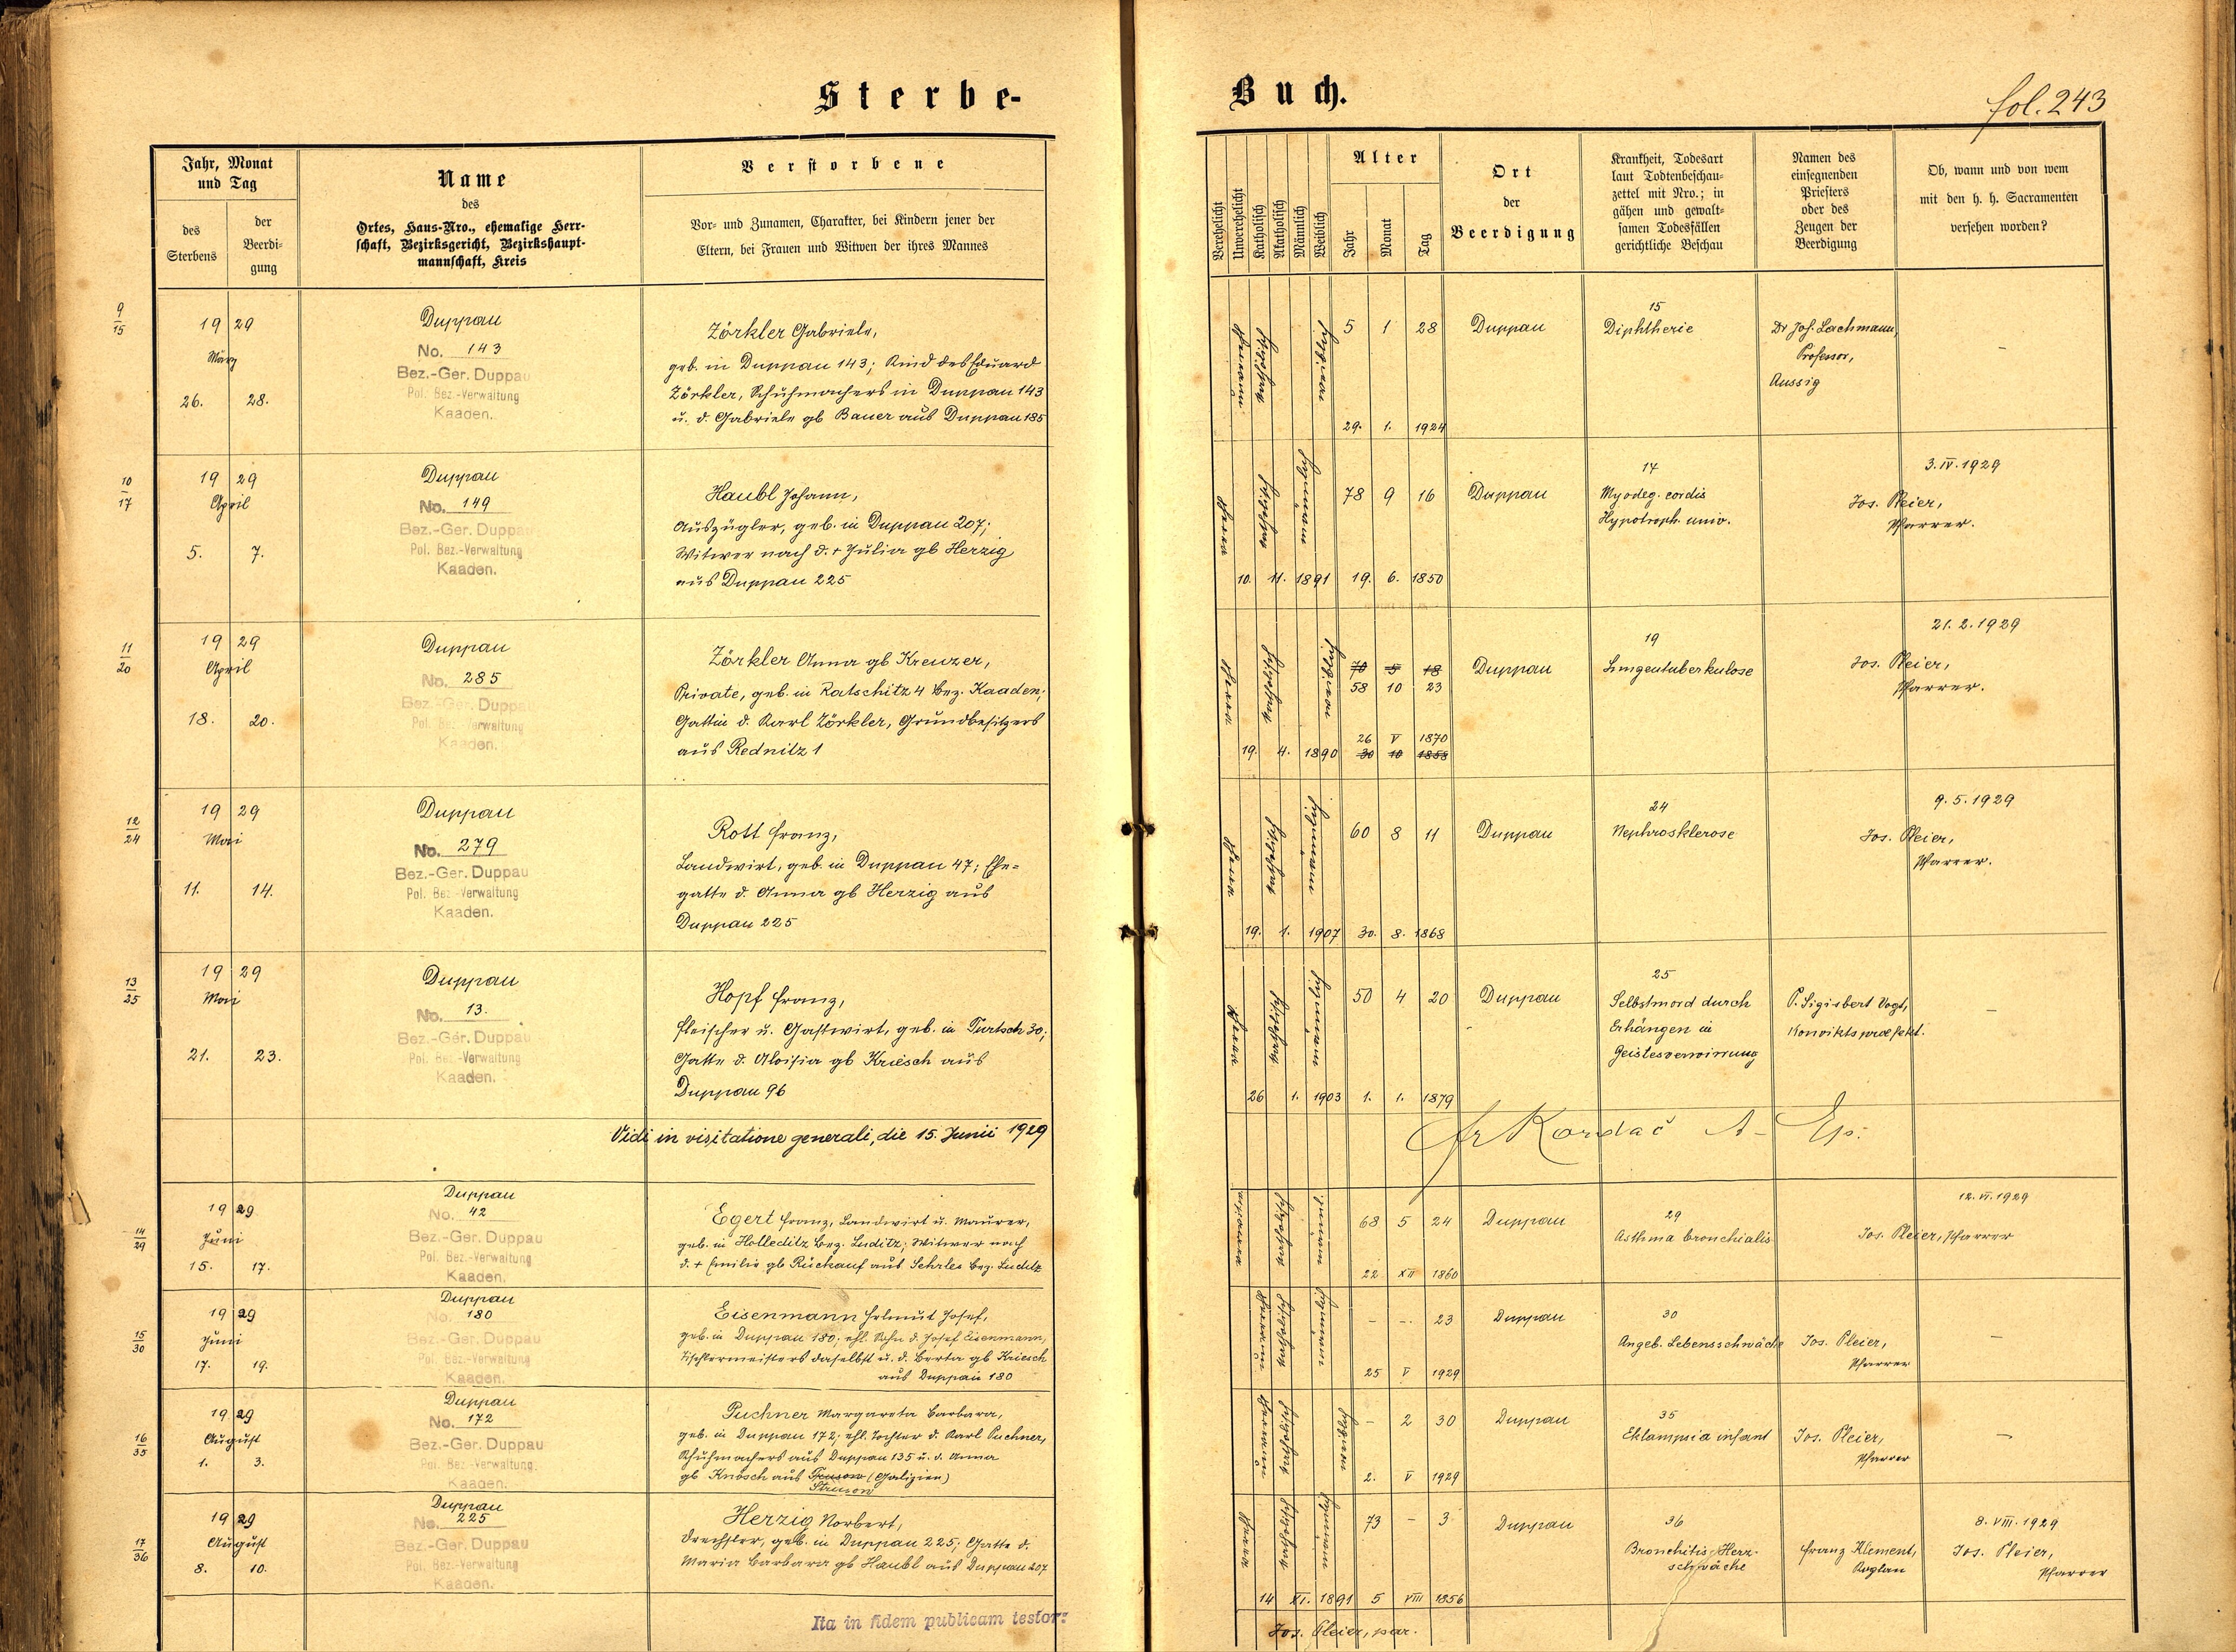 Sterbe-
Buch.
fol. 243
Jahr, Monat
und Tag
des
Sterbens
der
Beerdi-
gung
Name
des
Ortes, Haus-Nro., ehemalige Herr-
schaft, Bezirksgericht, Bezirkshaupt-
mannschaft, Kreis
Verstorbene
Vor- und Zunamen, Charakter, bei Kindern jener der
Eltern, bei Frauen und Witwen der ihres Mannes
Verehelicht
Unverehelicht
Katholisch
Akatholisch
Männlich
Weiblich
Alter
Jahr
Monat
Tag
Ort
der
Beerdigung
Krankheit, Todesart
laut Todtenbeschau-
zettel mit Nro.; in
gähen und gewalt-
samen Todesfällen
gerichtliche Beschau
Namen des
einsegnenden
Priesters
oder des
Zeugen der
Beerdigung
Ob, wann und von wem
mit den h. h. Sacramenten
versehen worden?
9
15
19 29
März
26. 28.
Duppau
No. 143
Bez.-Ger. Duppau
Pol. Bez.-Verwaltung
Kaaden.
Zörkler Gabriele,
geb. in Duppau 143; Kind des Eduard
Zörkler, Schuhmachers in Duppau 143
u. d. Gabriele gb Bauer aus Duppau 185
5 1 28
29. 1. 1924
Duppau
15
Diphtherie
Dr Jos. Lachmann,
Professor,
Aussig
–
10
17
19 29
April
5. 7.
Duppau
No. 149
Bez.-Ger. Duppau
Pol. Bez.-Verwaltung
Kaaden.
Haubl Johann,
Auszügler, geb. in Duppau 207;
Witwer nach d. + Julia gb Herzig
aus Duppau 225
10. 11. 1891
78 9 16
19. 6. 1850
Duppau
17
Myodeg. cordis
Hypotroph. univ.
3. IV. 1929
Jos. Pleier,
Pfarrer.
11
20
19 29
April
18. 20.
Duppau
No. 285
Bez.-Ger. Duppau
Pol. Bez.-Verwaltung
Kaaden.
Zörkler Anna gb Kreuzer,
Private, geb. in Ratschitz 4 Bez. Kaaden;
Gattin d. Karl Zörkler, Grundbesitzers
aus Rednitz 1
19. 4. 1890
70 5 18
58 10 23
26 V 1870
30 10 1858
Duppau
19
Lungentuberkulose
21. 2. 1929
Jos. Pleier,
Pfarrer.
12
24
19 29
Mai
11. 14.
Duppau
No. 279
Bez.-Ger. Duppau
Pol. Bez.-Verwaltung
Kaaden.
Rott Franz,
Landwirt, geb. in Duppau 47; Ehe-
gatte d. Anna gb Herzig aus
Duppau 225
19. 1. 1907
60 8 11
30. 8. 1868
Duppau
24
Nephrosklerose
9. 5. 1929
Jos. Pleier,
Pfarrer.
13
25
19 29
Mai
21. 23.
Duppau
No. 13.
Bez.-Ger. Duppau
Pol. Bez.-Verwaltung
Kaaden.
Hopf Franz,
Fleischer u. Gastwirt, geb. in Turtsch 30;
Gatte d. Aloisia gb Kriesch aus
Duppau 96
26 1. 1903
50 4 20
1. 1. 1879
Duppau
25
Selbstmord durch
Erhängen in
Geistesverwirrung
P. Sigisbert Vogt,
Konviktspraefekt.
–
Vidi in visitatione generali, die 15. Junii 1929
Fr Kordač A-Ep.
14
29
19 29
Juni
15. 17.
Duppau
No. 42
Bez.-Ger. Duppau
Pol. Bez.-Verwaltung
Kaaden.
Egert Franz, Landwirt u. Maurer,
geb. in Holleditz Bez. Luditz; Witwer nach
d. + Emilie gb Rückauf aus Sehrles Bez. Luditz
68 5 24
22 XII 1860
Duppau
29
Asthma bronchialis
12. VI. 1929
Jos. Pleier, Pfarrer
15
30
19 29
Juni
17. 19.
Duppau
No. 180
Bez.-Ger. Duppau
Pol. Bez.-Verwaltung
Kaaden.
Eisenmann Helmut Josef,
geb. in Duppau 180; ehl. Sohn d. Josef Eisenmann,
Tischlermeisters daselbst u. d. Berta gb Kriesch
aus Duppau 180
– – 23
25 V 1929
Duppau
30
Angeb. Lebensschwäche
Jos. Pleier,
Pfarrer
–
16
35
19 29
August
1. 3.
Duppau
No. 172
Bez.-Ger. Duppau
Pol. Bez.-Verwaltung
Kaaden.
Puchner Margareta Barbara,
geb. in Duppau 172; ehl. Tochter d. Karl Puchner,
Schuhmachers aus Duppau 135 u. d. Anna
gb Knösch aus (Galizien)
Strusow
– 2 30
2. V 1929
Duppau
35
Eklampsia infant
Jos. Pleier,
Pfarrer
–
17
36
19 29
August
8. 10.
Duppau
No. 225
Bez.-Ger. Duppau
Pol. Bez.-Verwaltung
Kaaden.
Herzig Norbert,
Drechsler, geb. in Duppau 225; Gatte d.
Maria Barbara gb Haubl aus Duppau 207
14 XI. 1891
73 – 3
5 VIII 1856
Duppau
36
Bronchitis, Herz-
schwäche
Franz Klement,
8. VIII. 1929
Jos. Pleier,
Pfarrer
Ita in fidem publicam testor:
Jos. Pleier, par.